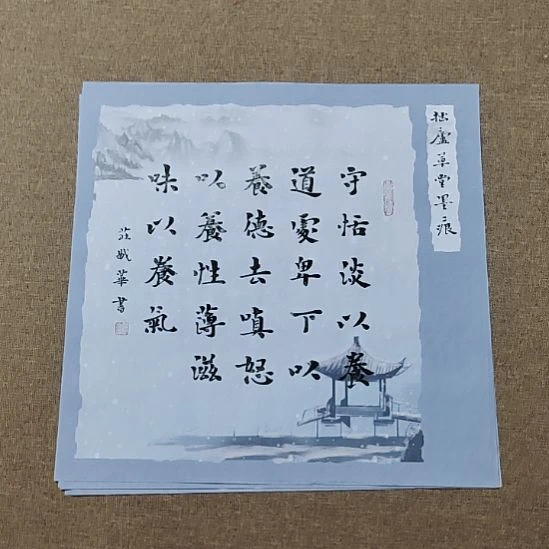 拙廬草堂墨痕
守恬淡以養
道處卑下以
養德去嗔怒
以養性薄滋
味以養氣
莊戚華書